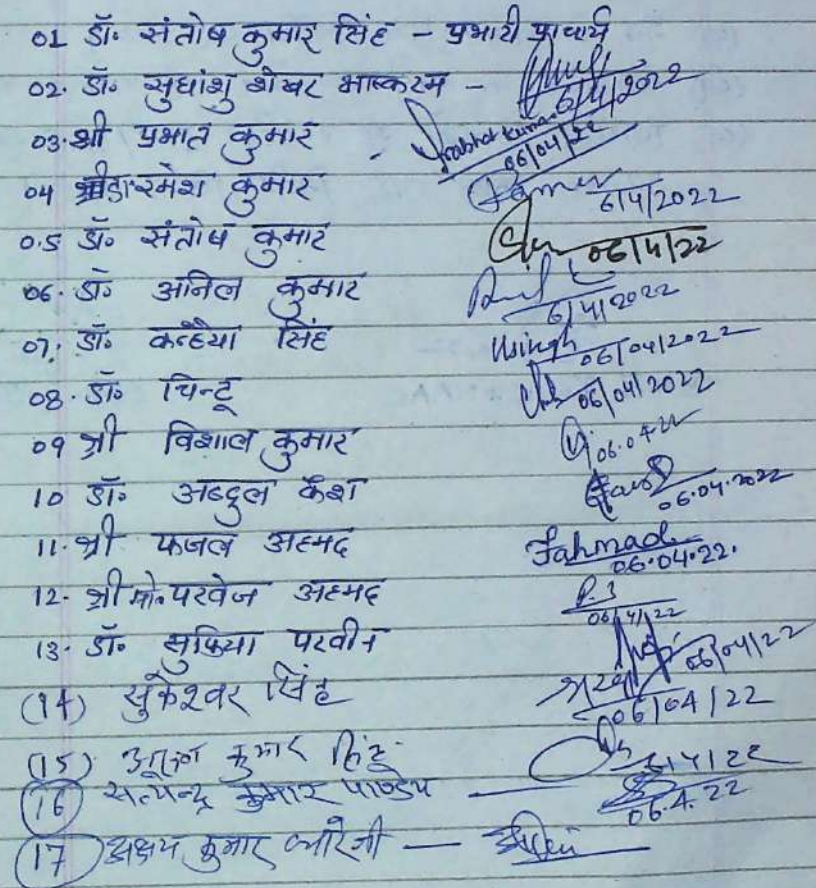 01 डॉ. संतोष कुमार सिंह - प्रभारी प्राचार्य
02. डॉ. सुधांशु शेखर भास्करम - 6/4/2022
03. श्री प्रभात कुमार - Prabhat Kumar 06/04/22
04 डा. रमेश कुमार 6/4/2022
05 डॉ. संतोष कुमार 06/4/22
06. डॉ. अनिल कुमार 6/4/2022
07. डॉ. कन्हैया सिंह KSingh 06/04/2022
08. डॉ. चिन्टू 06/04/2022
09 श्री विशाल कुमार 06.04.22
10 डॉ. अब्दुल कैश 06.04.2022
11. श्री फजल अहमद Fahmad 06.04.22.
12. श्री मो. परवेज अहमद 06/4/22
13. डॉ. सुफिया परवीन 06/04/22
(14) सुकेश्वर सिंह 06/04/22
(15) कुमार 6/4/22
(16) सत्येन्द्र कुमार पाण्डेय - 06.4.22
(17) अक्षय कुमार -